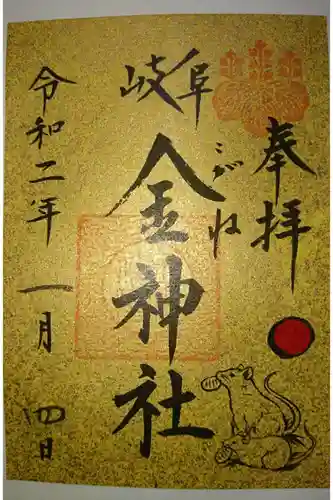 奉拝
岐阜
こがね
金神社
令和二年 一月 四日